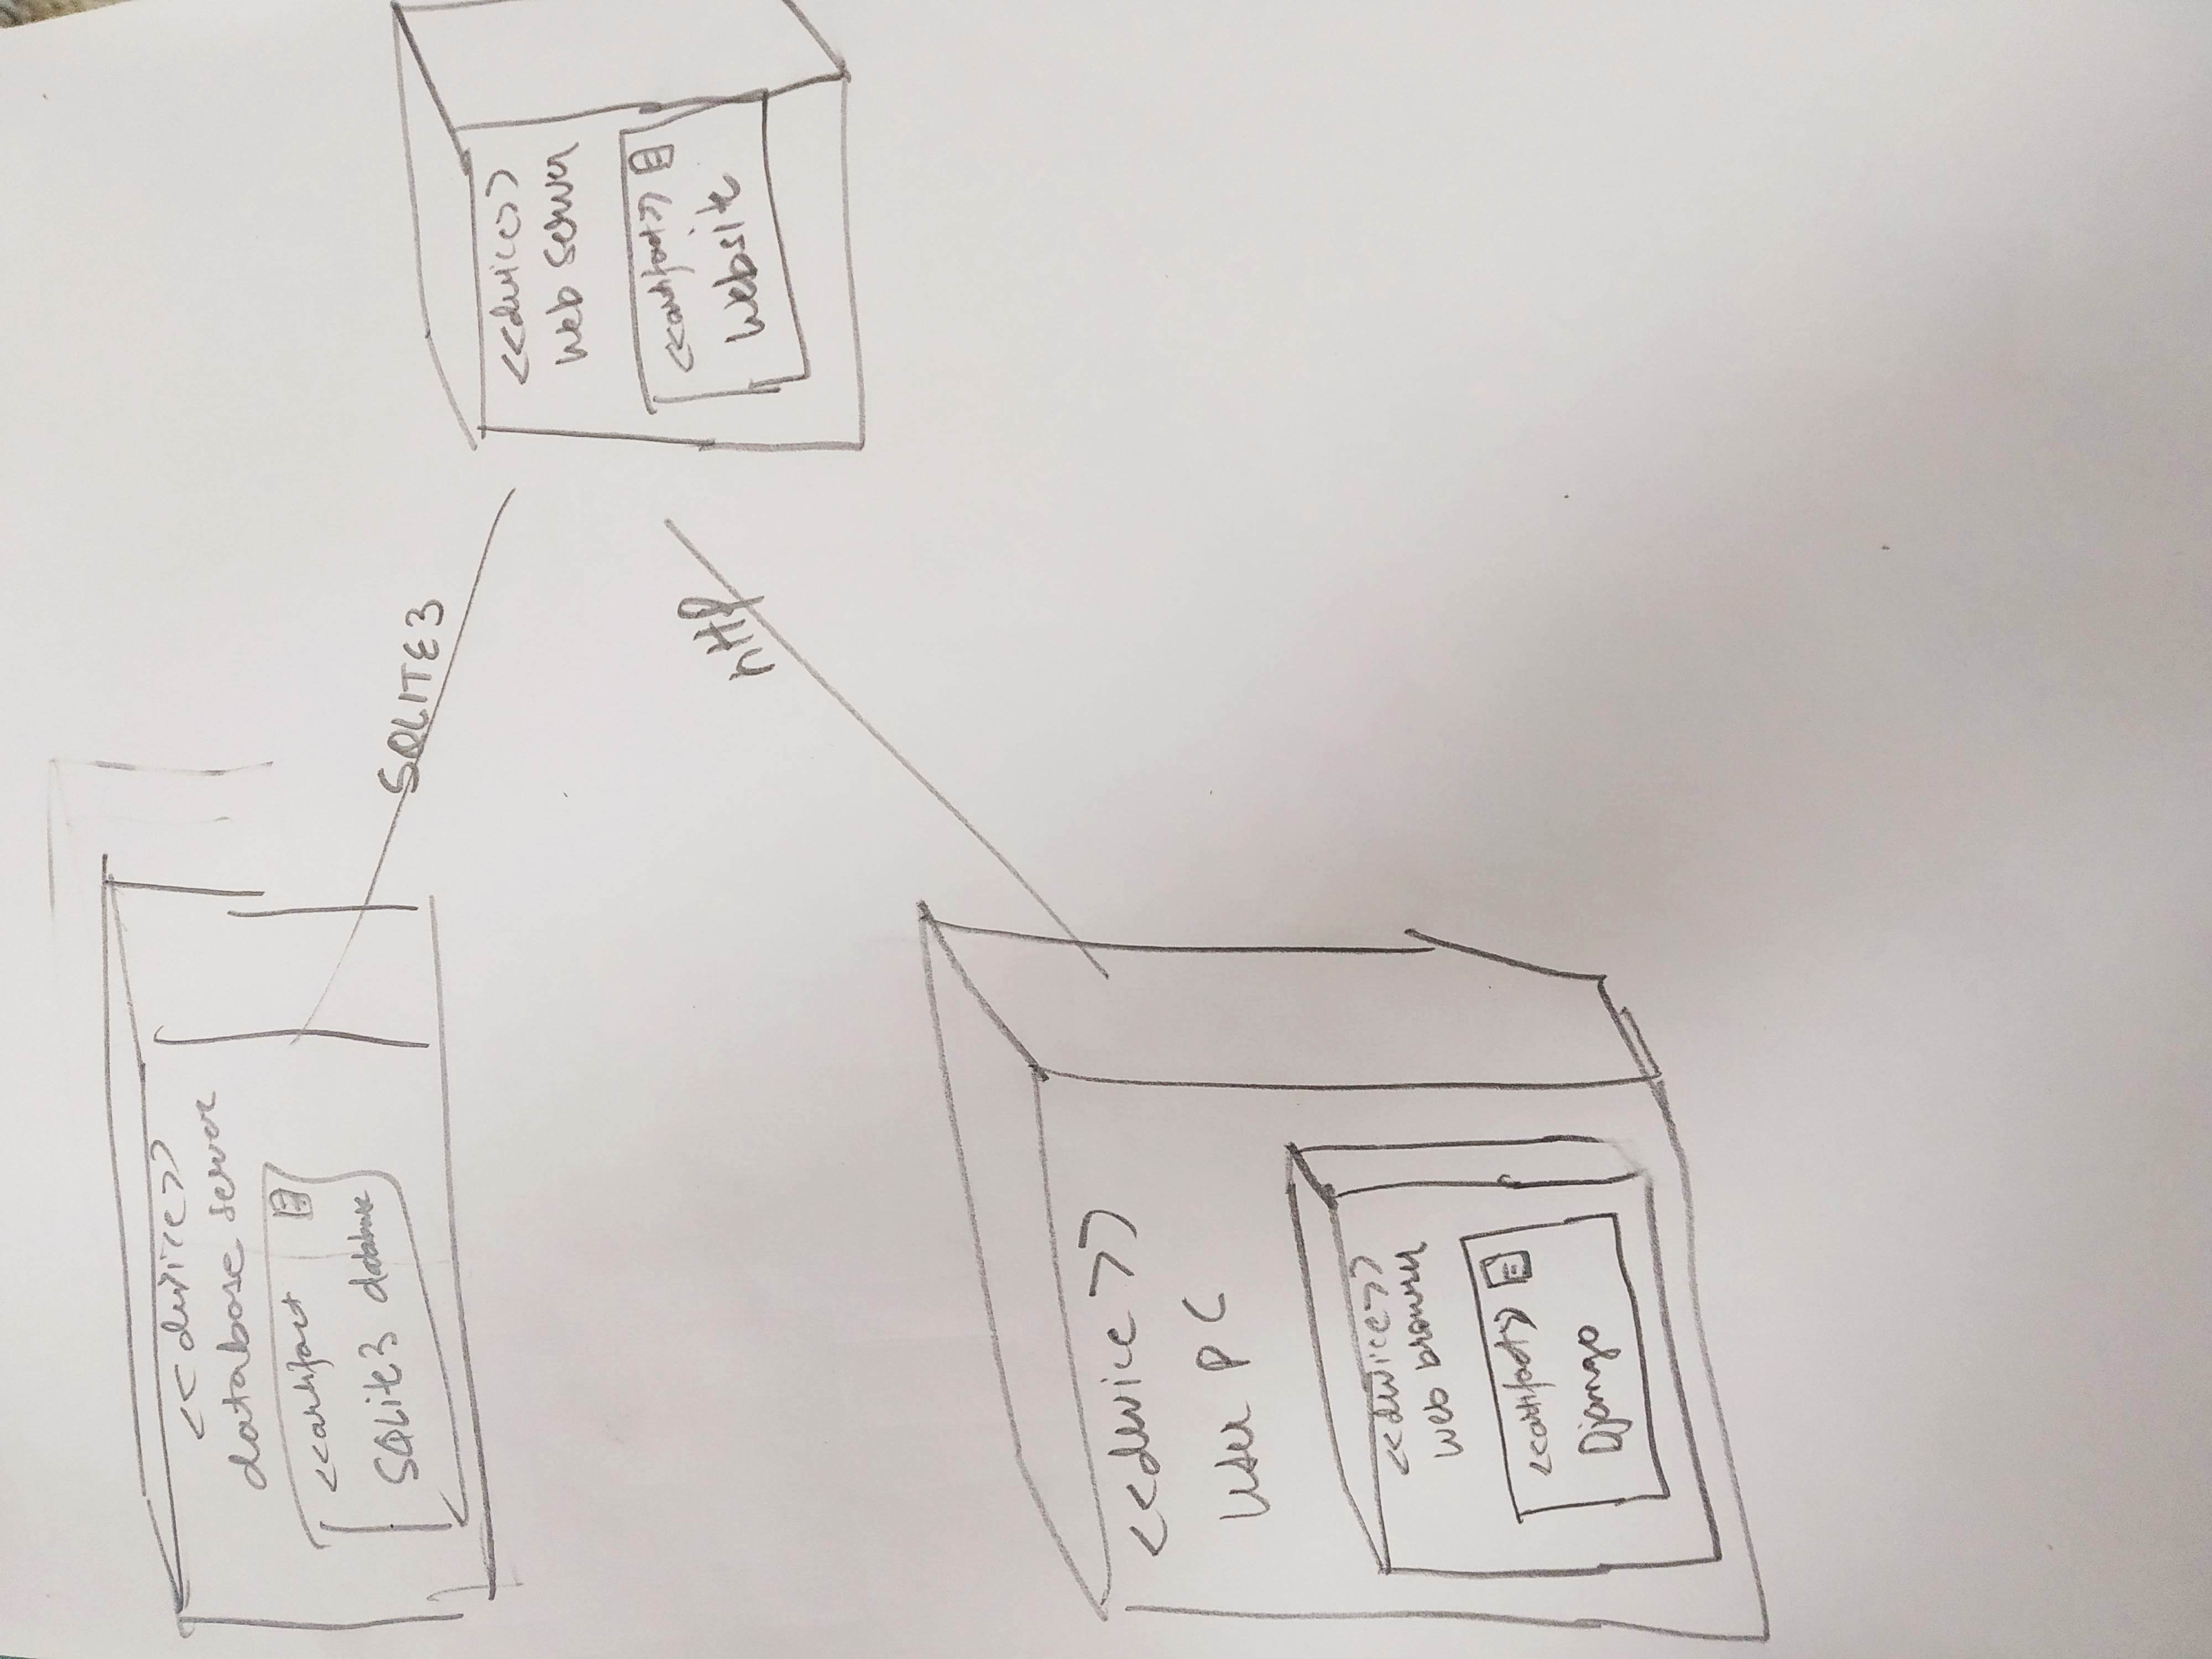 <<device>>
database server
<<artifact
SQLite3 database
SQLITE3
<<device>>
Web Server
<<artifact>>
Website
HTTP
<<device>>
User PC
<<device>>
Web browser
<<artifact>>
Django